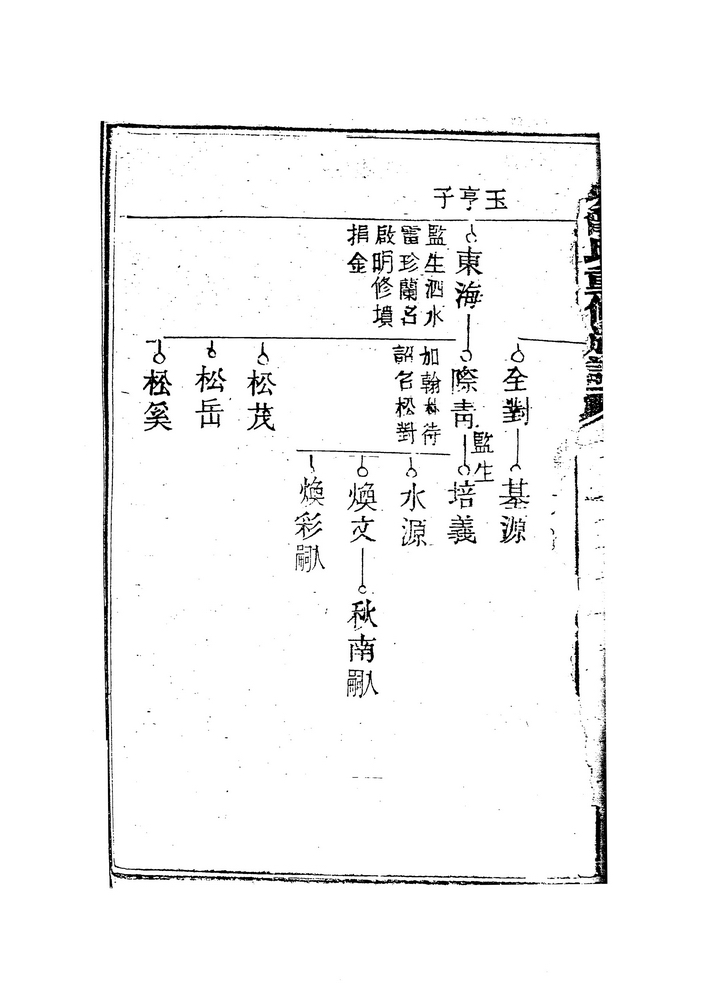 玉亨子
東海
監生泗水
雷珍蘭名
啟明修墳
捐金
全對
基源
際青
加翰林待
詔名松對
監生
培義
水源
煥文
秋南
嗣入
煥彩
嗣入
松茂
松岳
松奚